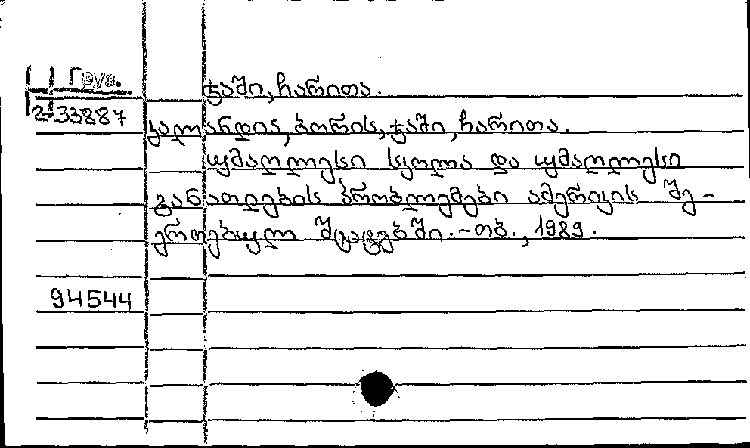 Груз.
2-33887
ჯაში, ჩარითა.
კალანდია, ბორის, ჯაში, ჩარითა.
უმაღლესი სკოლა და უმაღლესი
განათლების პრობლემები ამერიკის შე-
ერთებულ შტატებში.-თბ., 1989.
94544